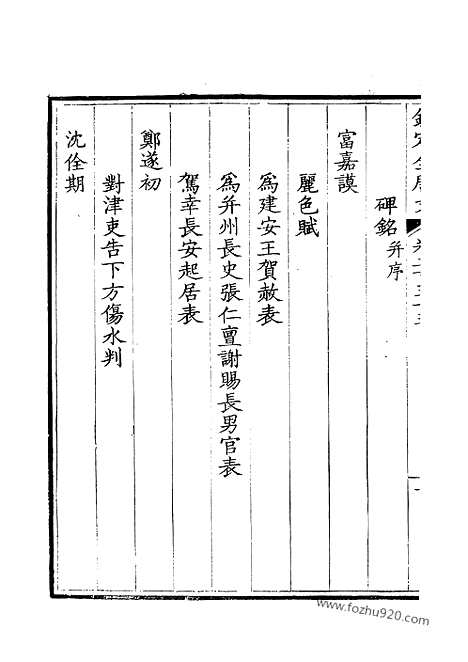 碑銘并序
富嘉謨
麗色賦
為建安王賀赦表
為并州長史張仁亶謝賜長男官表
駕幸長安起居表
鄭遂初
對津吏告下方傷水判
沈佺期
www.fozhu920.com